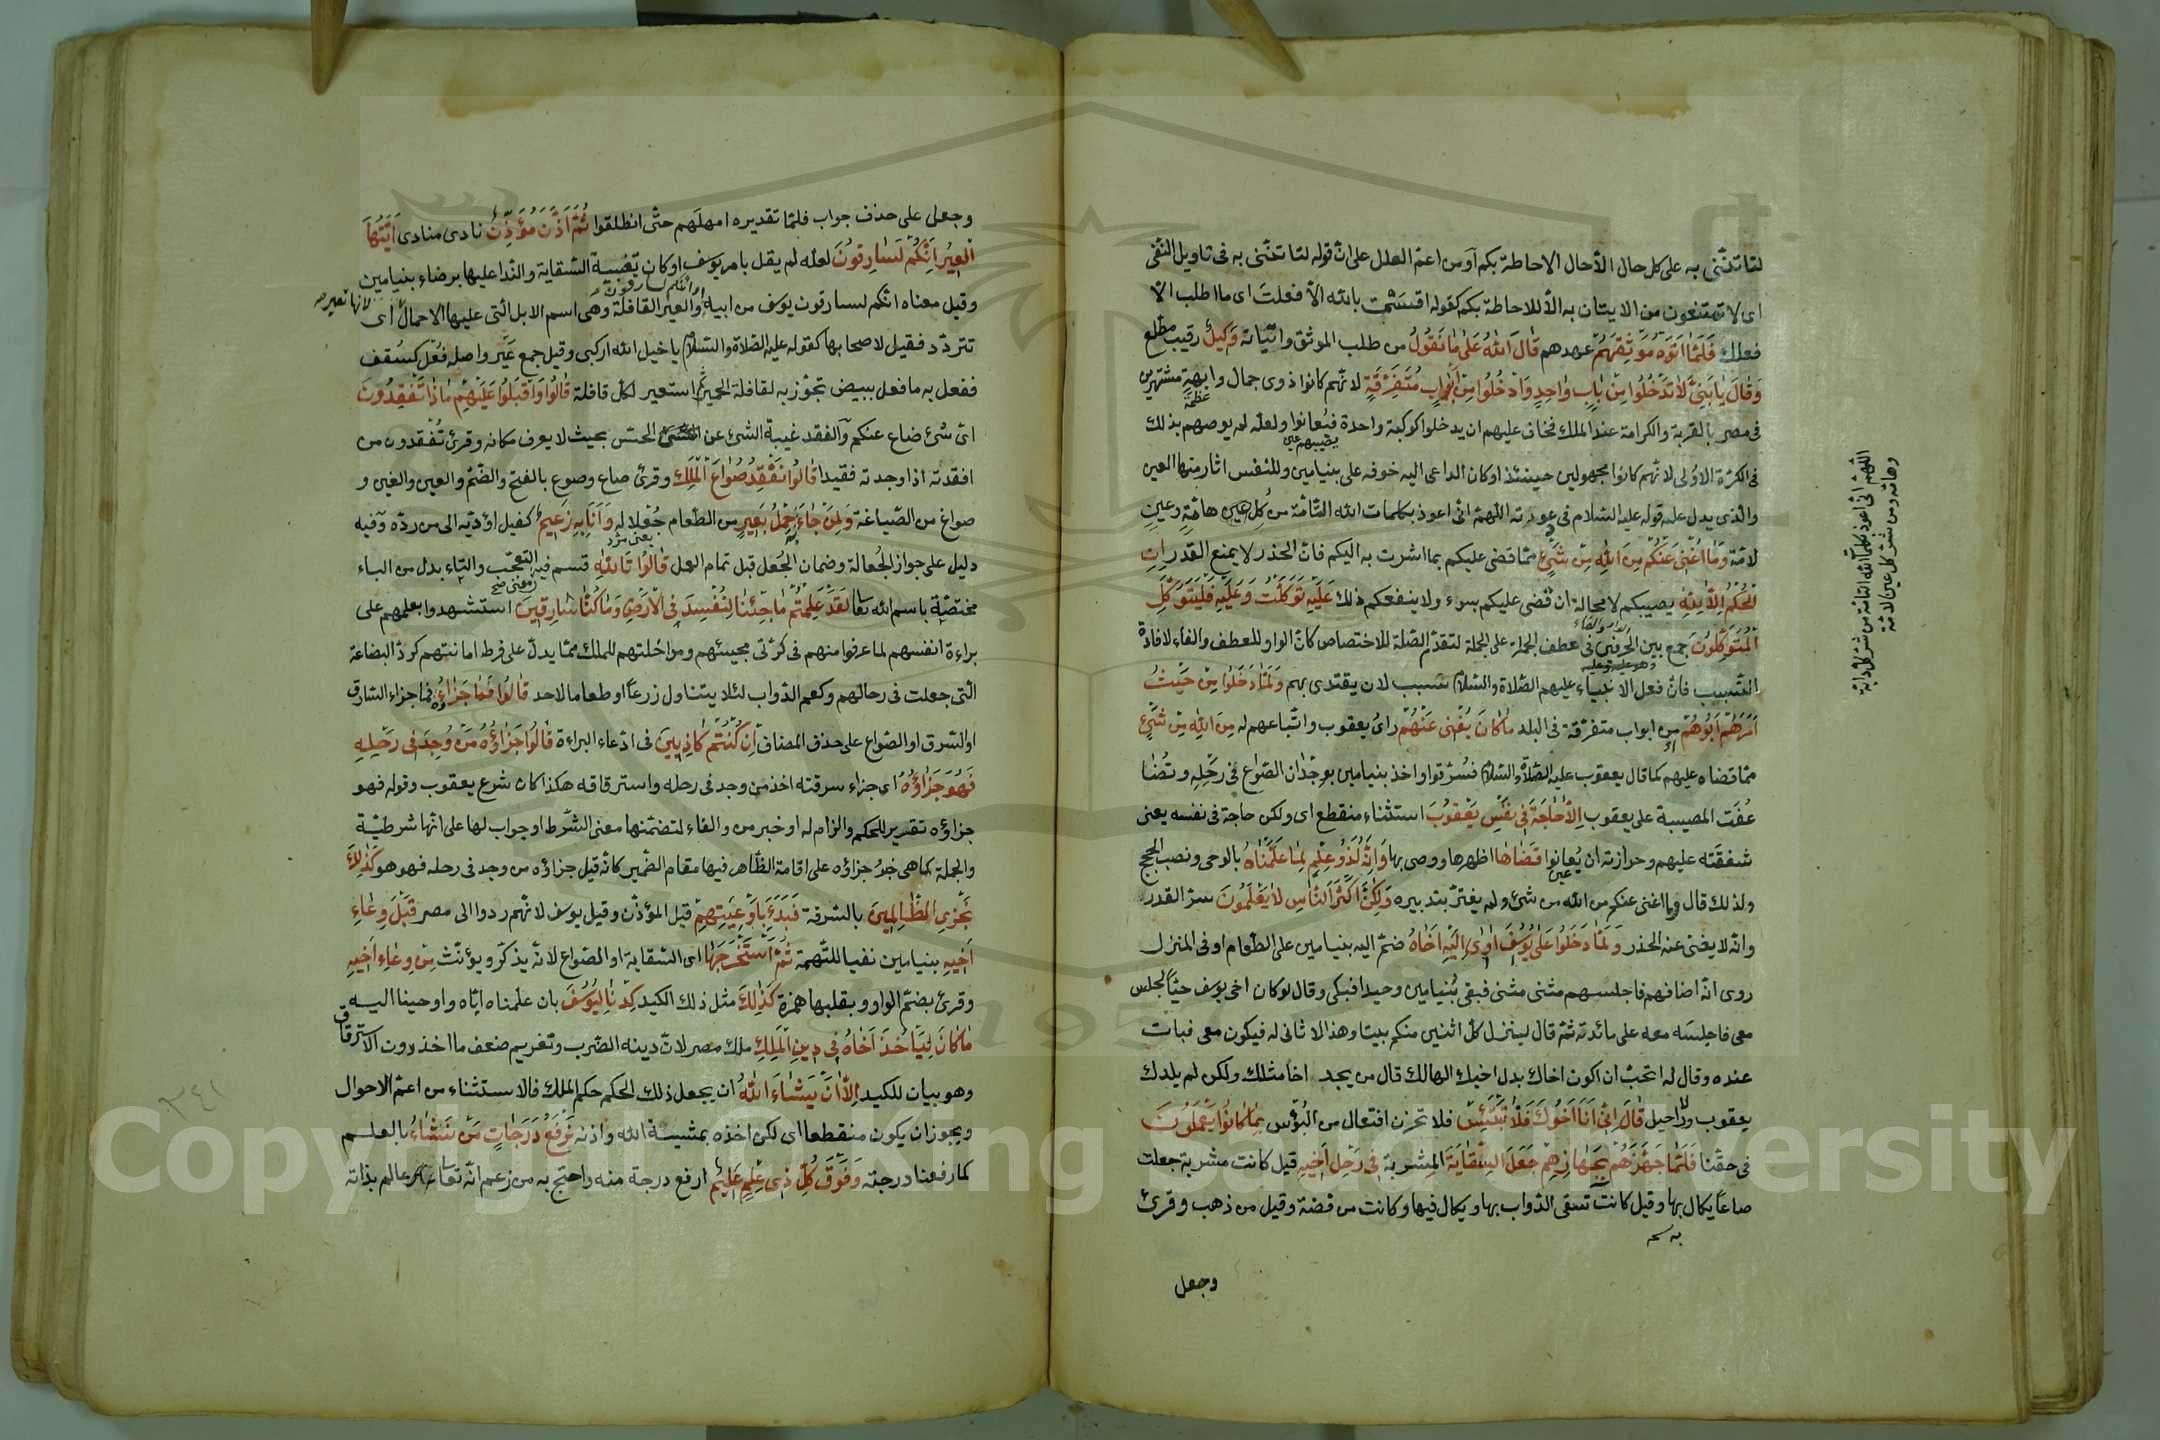 لتأتنني به على كل حال الا حال الاحاطة بكم أو من اعم العلل على ان قوله لتأتنني به في تاويل النفي
اي لا تمتنعون من الاتيان به الا للاحاطة بكم كقوله اقسمت بالله الا فعلت اي ما اطلب الا
فعلك فَلَمَّا اٰتَوْهُ مَوْثِقَهُمْ عهدهم قَالَ اللّٰهُ عَلٰى مَا نَقُولُ من طلب الموثق واتيانه وَكِيلٌ رقيب مطلع
وَقَالَ يَا بَنِيَّ لَا تَدْخُلُوا مِنْ بَابٍ وَاحِدٍ وَادْخُلُوا مِنْ اَبْوَابٍ مُتَفَرِّقَةٍ لانهم كانوا ذوى جمال وابهة مشتهرين
عظمة
في مصر بالقربة والكرامة عند الملك فخاف عليهم ان يدخلوا كوكبة واحدة فيعانوا ولعله لم يوصهم بذلك
يصيبهم عين
في الكرة الاولى لانهم كانوا مجهولين حينئذ او كان الداعي اليه خوفه على بنيامين وللنفس اثار منها العين
والذي يدل عليه قوله عليه السلام في عوذته اللهم اني اعوذ بكلمات الله التامة من كل عين هامة وعين
لامة وَمَا اُغْنِي عَنْكُمْ مِنَ اللّٰهِ مِنْ شَيْءٍ مما قضى عليكم بما اشرت به اليكم فان الحذر لا يمنع القدر اِنِ
الْحُكْمُ اِلَّا لِلّٰهِ يصيبكم لا محالة ان قضى عليكم بسوء ولا ينفعكم ذلك عَلَيْهِ تَوَكَّلْتُ وَعَلَيْهِ فَلْيَتَوَكَّلِ
الْمُتَوَكِّلُونَ جمع بين الحرفين في عطف الجملة على الجملة لتقدم الصلة للاختصاص كان الواو للعطف والفاء لافادة
التسبب فان فعل الانبياء عليهم الصلاة والسلام سبب لان يقتدى بهم وَلَمَّا دَخَلُوا مِنْ حَيْثُ
اَمَرَهُمْ اَبُوهُمْ من ابواب متفرقة في البلد مَا كَانَ يُغْنِي عَنْهُمْ راى يعقوب واتباعهم له مِنَ اللّٰهِ مِنْ شَيْءٍ
مما قضاه عليهم كما قال يعقوب عليه الصلاة والسلام فسرقوا واخذ بنيامين بوجدان الصواع في رحله وتضا
عفت المصيبة على يعقوب اِلَّا حَاجَةً فِي نَفْسِ يَعْقُوبَ استثناء منقطع اي ولكن حاجة في نفسه يعني
شفقته عليهم وحرازته ان يعانوا قَضَاهَا اظهرها ووصى بها وَاِنَّهُ لَذُو عِلْمٍ لِمَا عَلَّمْنَاهُ بالوحي ونصب الحجج
ولذلك قال وما اغنى عنكم من الله من شئ ولم يغتر بتدبيره وَلٰكِنَّ اَكْثَرَ النَّاسِ لَا يَعْلَمُونَ سر القدر
وانه لا يغني عنه الحذر وَلَمَّا دَخَلُوا عَلٰى يُوسُفَ اٰوٰى اِلَيْهِ اَخَاهُ ضم اليه بنيامين على الطعام او في المنزل
روى انه اضافهم فاجلسهم مثنى مثنى فبقي بنيامين وحيدا فبكى وقال لو كان اخي يوسف حيا لجلس
معي فاجلسه معه على مائدته ثم قال لينزل كل اثنين منكم بيتا وهذا لا ثاني له فيكون معي فبات
عنده وقال له اتحب ان اكون اخاك بدل اخيك الهالك قال من يجد اخا مثلك ولكن لم يلدك
يعقوب ولا راحيل قَالَ اِنِّي اَنَا اَخُوكَ فَلَا تَبْتَئِسْ فلا تحزن افتعال من البؤس بِمَا كَانُوا يَعْمَلُونَ
في حقنا فَلَمَّا جَهَّزَهُمْ بِجَهَازِهِمْ جَعَلَ السِّقَايَةَ المشربة فِي رَحْلِ اَخِيهِ قيل كانت مشربة جعلت
صاعا يكال بها وقيل كانت تسقى الدواب بها ويكال فيها وكانت من فضة وقيل من ذهب وقرئ
وجعل
اللهم اني اعوذ بكلمات الله التامة من شر كل دابة
وهامة ومن شر كل عين لامة
وجعل على حذف جواب فلما تقديره امهلهم حتى انطلقوا ثُمَّ اَذَّنَ مُؤَذِّنٌ نادى منادى اَيَّتُهَا
الْعِيرُ اِنَّكُمْ لَسَارِقُونَ لعله لم يقل بامر يوسف او كان تعبية السقاية والندا عليها برضاء بنيامين
وقيل معناه انكم لسارقون يوسف من ابيه والعير القافلة وهي اسم الابل التي عليها الاحمال لانها تعير اي
تتردد فقيل لاصحابها كقوله عليه الصلاة والسلام يا خيل الله اركبي وقيل جمع عير واصله فعل كسقف
ففعل به ما فعل ببيض تجوز به لقافلة الحمير ثم استعير لكل قافلة قَالُوا وَاَقْبَلُوا عَلَيْهِمْ مَاذَا تَفْقِدُونَ
اي شئ ضاع عنكم والفقد غيبة الشئ عن الحس بحيث لا يعرف مكانه وقرئ تفقدون من
افقدته اذا وجدته فقيدا قَالُوا نَفْقِدُ صُوَاعَ الْمَلِكِ وقرئ صاع وصوع بالفتح والضم والعين والغين و
صواغ من الصياغة وَلِمَنْ جَاءَ بِهِ حِمْلُ بَعِيرٍ من الطعام جعلا له وَاَنَا بِهِ زَعِيمٌ كفيل اؤديه الى من رده وفيه
دليل على جواز الجعالة وضمان الجعل قبل تمام العمل قَالُوا تَاللّٰهِ قسم فيه معنى التعجب والتاء بدل من الباء
مختصة باسم الله تعا لَقَدْ عَلِمْتُمْ مَا جِئْنَا لِنُفْسِدَ فِي الْاَرْضِ وَمَا كُنَّا سَارِقِينَ استشهدوا بعلمهم على
براءة انفسهم لما عرفوا منهم في كرتي مجيئهم ومداخلتهم للملك مما يدل على فرط امانتهم كرد البضاعة
التي جعلت في رحالهم وكعم الدواب لئلا يتناول زرعا او طعاما لاحد قَالُوا فَمَا جَزَاؤُهُ فما جزاء السارق
او السرق او الصواع على حذف المضاف اِنْ كُنْتُمْ كَاذِبِينَ في ادعاء البراءة قَالُوا جَزَاؤُهُ مَنْ وُجِدَ فِي رَحْلِهِ
فَهُوَ جَزَاؤُهُ اي جزاء سرقته اخذ من وجد في رحله واسترقاقه هكذا كان شرع يعقوب وقوله فهو
جزاؤه تقرير للحكم والزام له او خبر من والفاء لتضمنها معنى الشرط او جواب لها على انها شرطية
والجملة كما هي خبر جزاؤه على اقامة الظاهر فيها مقام الضمير كانه قيل جزاؤه من وجد في رحله فهو هو كَذٰلِكَ
نَجْزِي الظَّالِمِينَ بالسرقة فَبَدَأَ بِاَوْعِيَتِهِمْ قيل المؤذن وقيل يوسف لانهم ردوا الى مصر قَبْلَ وِعَاءِ
اَخِيهِ بنيامين نفيا للتهمة ثُمَّ اسْتَخْرَجَهَا اي السقاية او الصواع لانه يذكر ويؤنث مِنْ وِعَاءِ اَخِيهِ
وقرئ بضم الواو وبقلبها همزة كَذٰلِكَ مثل ذلك الكيد كِدْنَا لِيُوسُفَ بان علمناه اياه واوحينا اليه
مَا كَانَ لِيَأْخُذَ اَخَاهُ فِي دِينِ الْمَلِكِ ملك مصر لان دينه الضرب وتغريم ضعف ما اخذ دون الاسترقاق
وهو بيان للكيد اِلَّا اَنْ يَشَاءَ اللّٰهُ ان يجعل ذلك الحكم حكم الملك فالاستثناء من اعم الاحوال
ويجوز ان يكون منقطعا اي لكن اخذه بمشيئة الله واذنه نَرْفَعُ دَرَجَاتٍ مَنْ نَشَاءُ بالعلم
كما رفعنا درجته وَفَوْقَ كُلِّ ذِي عِلْمٍ عَلِيمٌ ارفع درجة منه واحتج به من زعم انه تعا عالم بذاته
٢٤١
Copyright © King Saud University
1957